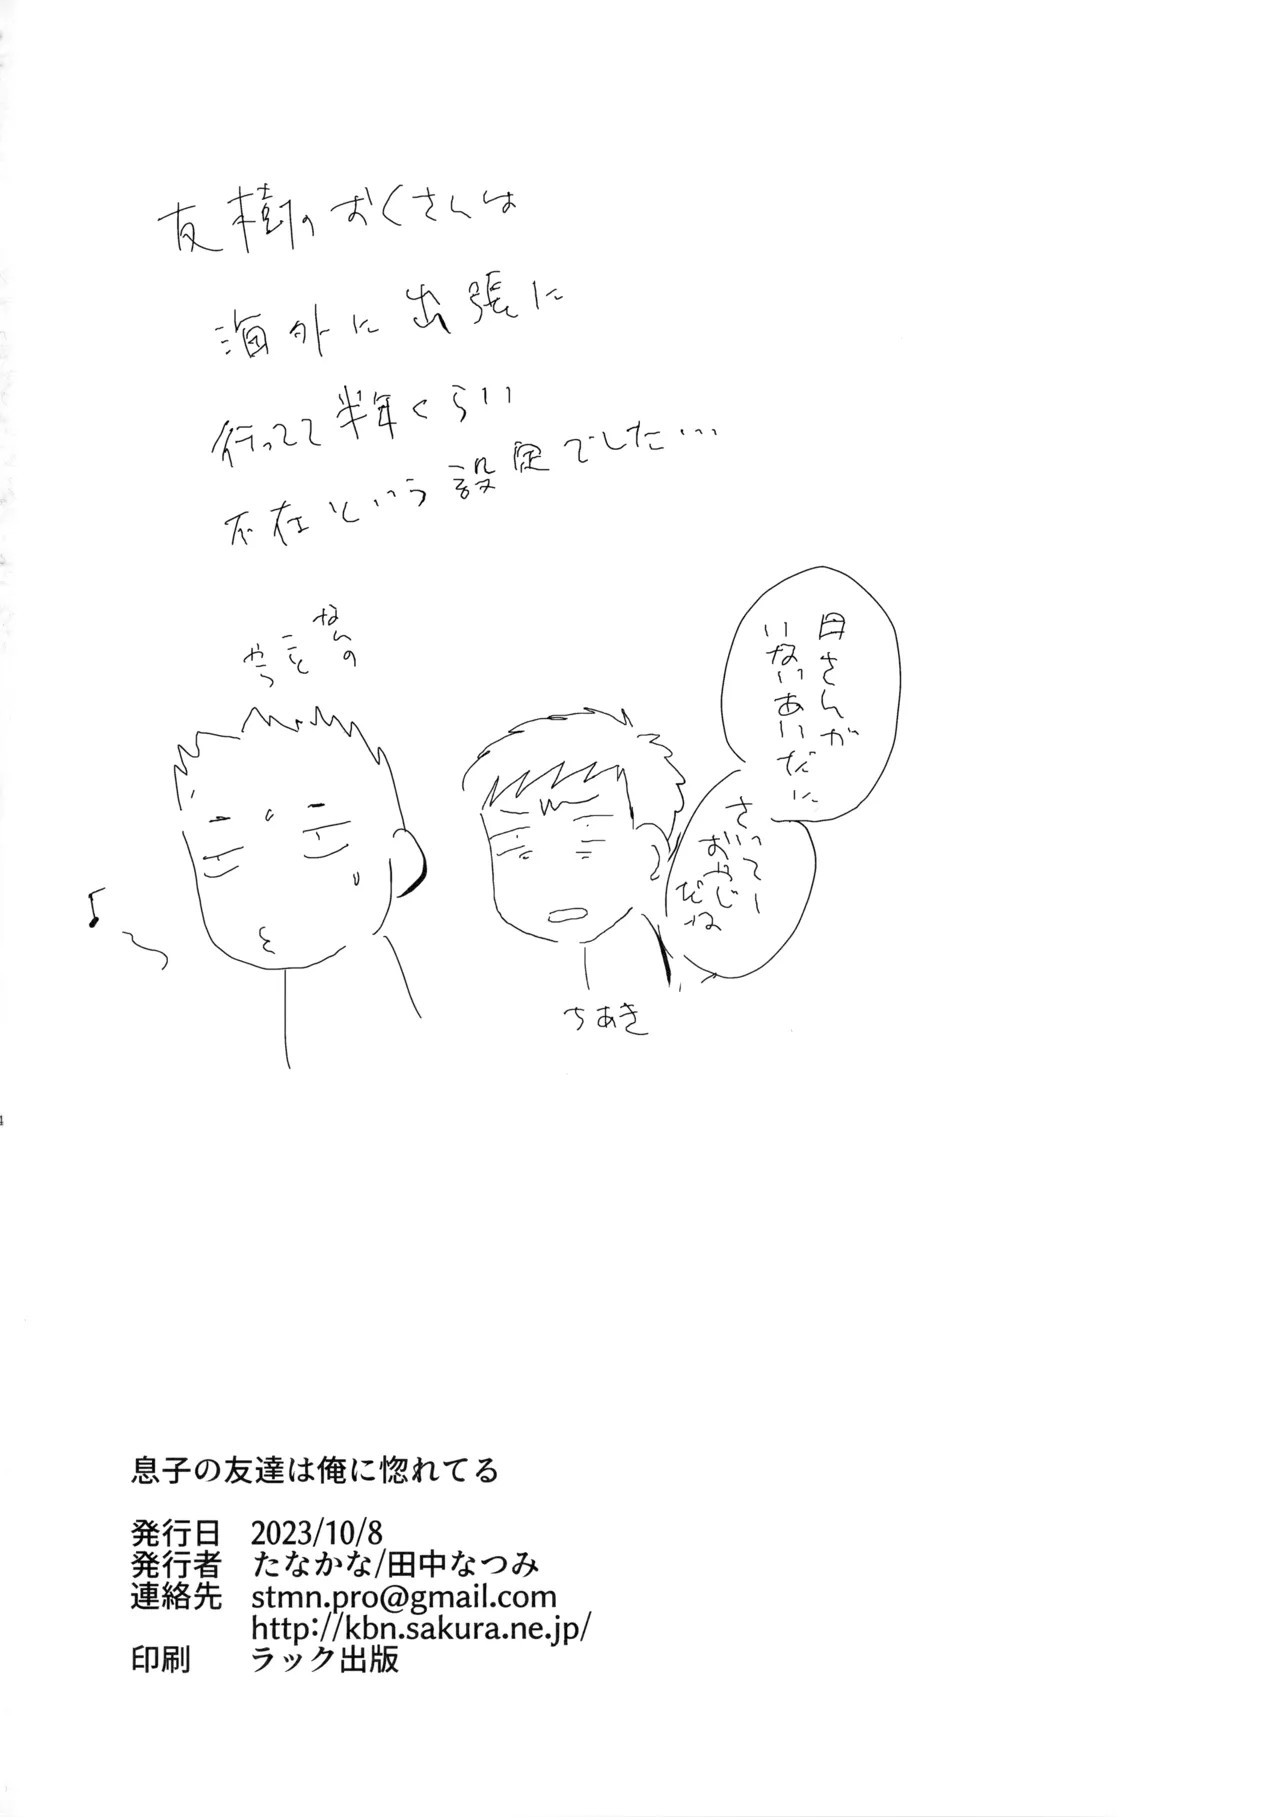 友樹のおくさんは
海外に出張に
行ってて半年くらい
不在という設定でした…
母さんが
いないあいだに
さいってー
おやじ
だね
なんの
こと
やら
ちあき
息子の友達は俺に惚れてる
発行日 2023/10/8
発行者 たなかな/田中なつみ
連絡先 stmn.pro@gmail.com
http://kbn.sakura.ne.jp/
印刷 ラック出版